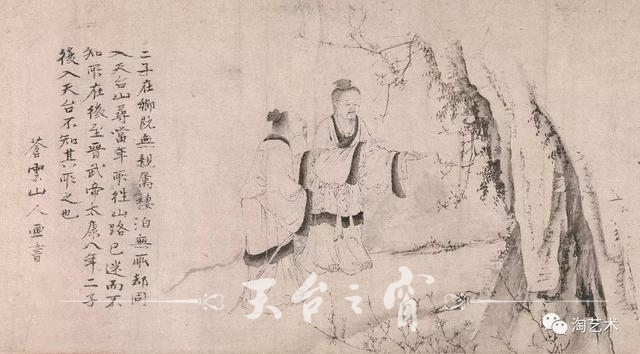 二子在鄉既無親屬棲泊無所却同
入天台山尋當年所往山路已迷而不
知所在後至晉武帝太康八年二子
復入天台不知其所之也
蒼雲山人画書
天台之窗
淘艺术